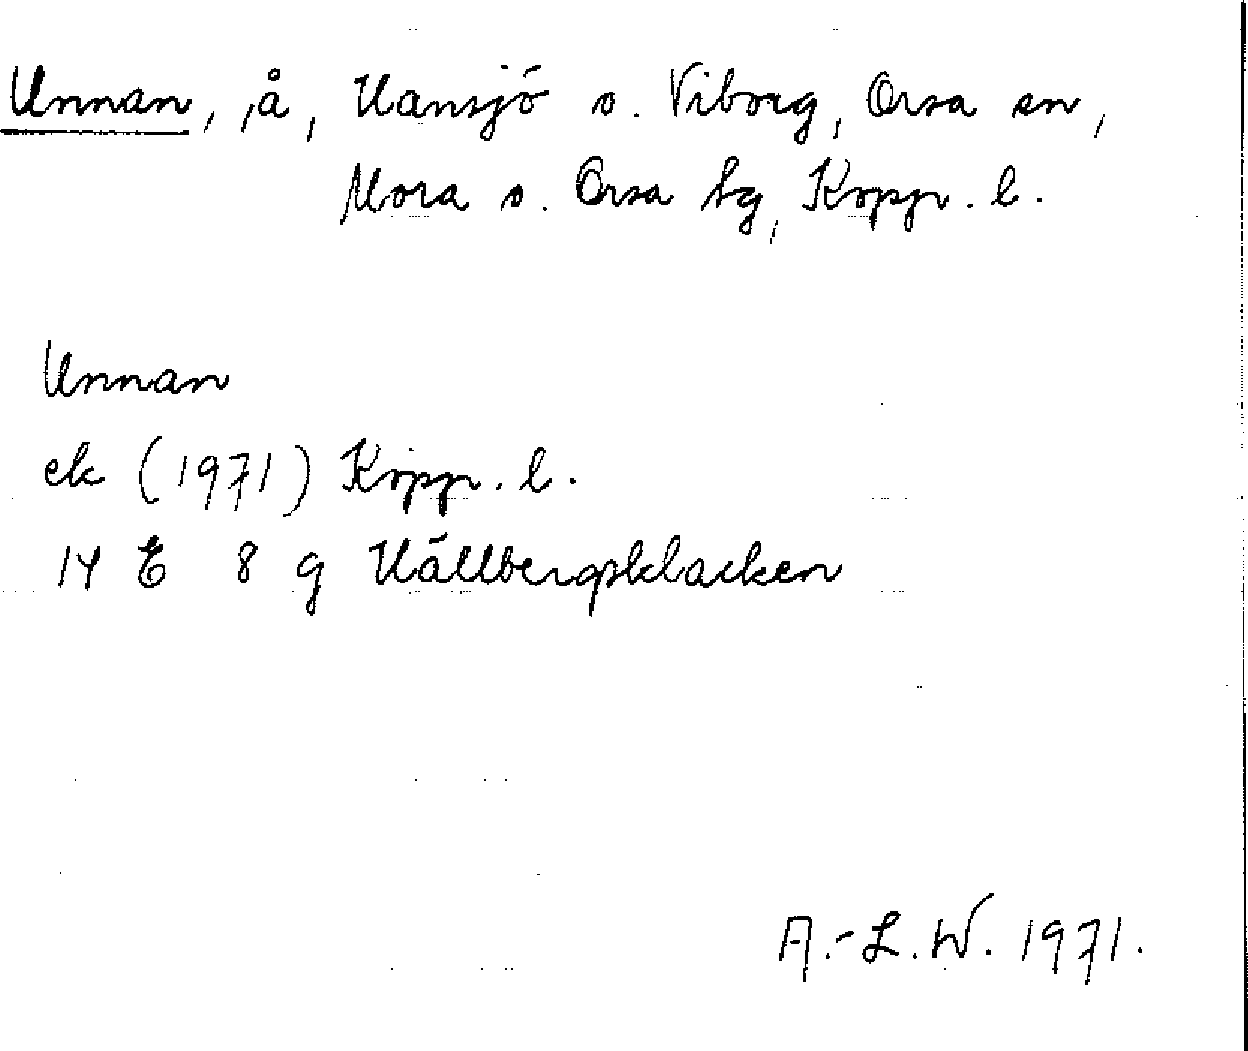 Unnan, å, Hansjö o. Viborg, Orsa sn,
Mora o. Orsa tg, Kopp. l.
Unnan
ek (1971) Kopp. l.
14 E 8 g Hållbergsklacken
A.-L. W. 1971.